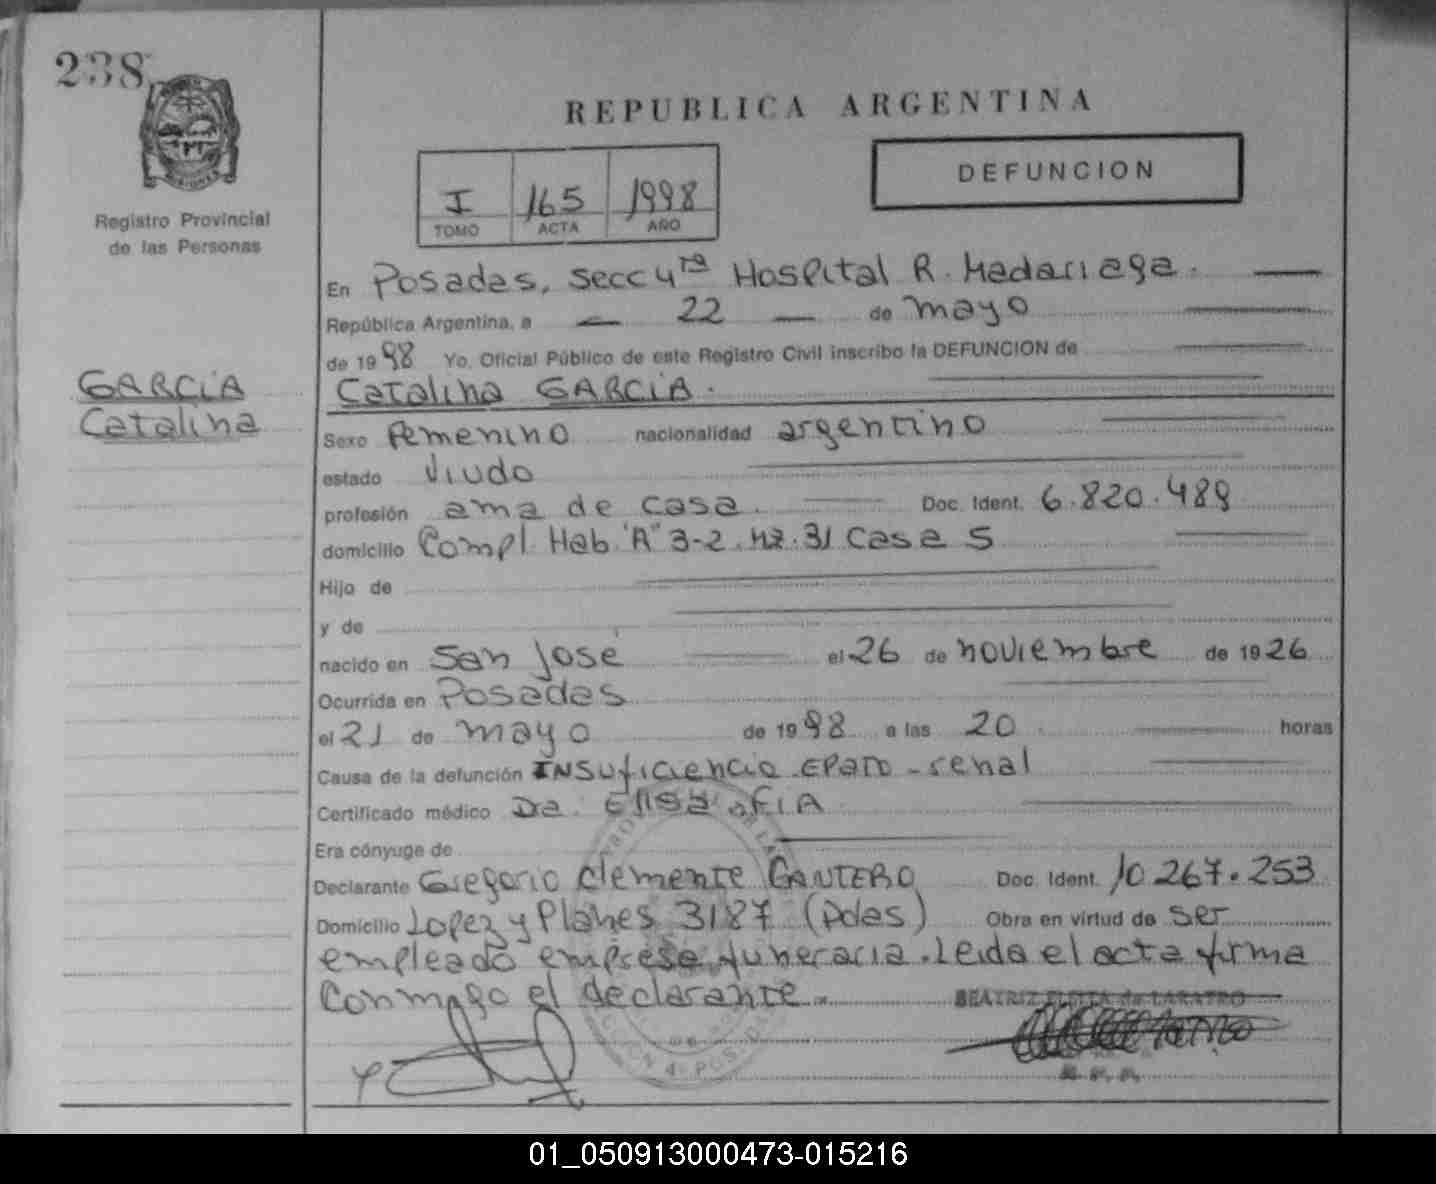 238
REPUBLICA ARGENTINA
DEFUNCION
I 165 1998
TOMO ACTA AÑO
Registro Provincial
de las Personas
GARCIA
Catalina
En Posadas, Secc 4ta Hospital R. Madariaga.
República Argentina, a 22 de mayo
de 1998 Yo, Oficial Público de este Registro Civil inscribo la DEFUNCION de
Catalina GARCIA.
Sexo femenino nacionalidad argentino
estado viudo
profesión ama de casa. Doc. Ident. 6.820.489
domicilio Compl. Hab. "A" 3-2. Mz. 31 Casa 5
Hijo de
y de
nacido en San José el 26 de noviembre de 1926
Ocurrida en Posadas
el 21 de mayo de 1998 a las 20 horas
Causa de la defunción INSuficiencia EPATO-renal
Certificado médico Da. Elisa FIA
Era cónyuge de
Declarante Gregorio Clemente CANTERO Doc. Ident. 10.267.253
Domicilio Lopez y Planes 3187 (Pdas) Obra en virtud de ser
empleado empresa funeraria. Leida el acta firma
Conmigo el declarante.
BEATRIZ de
01_050913000473-015216